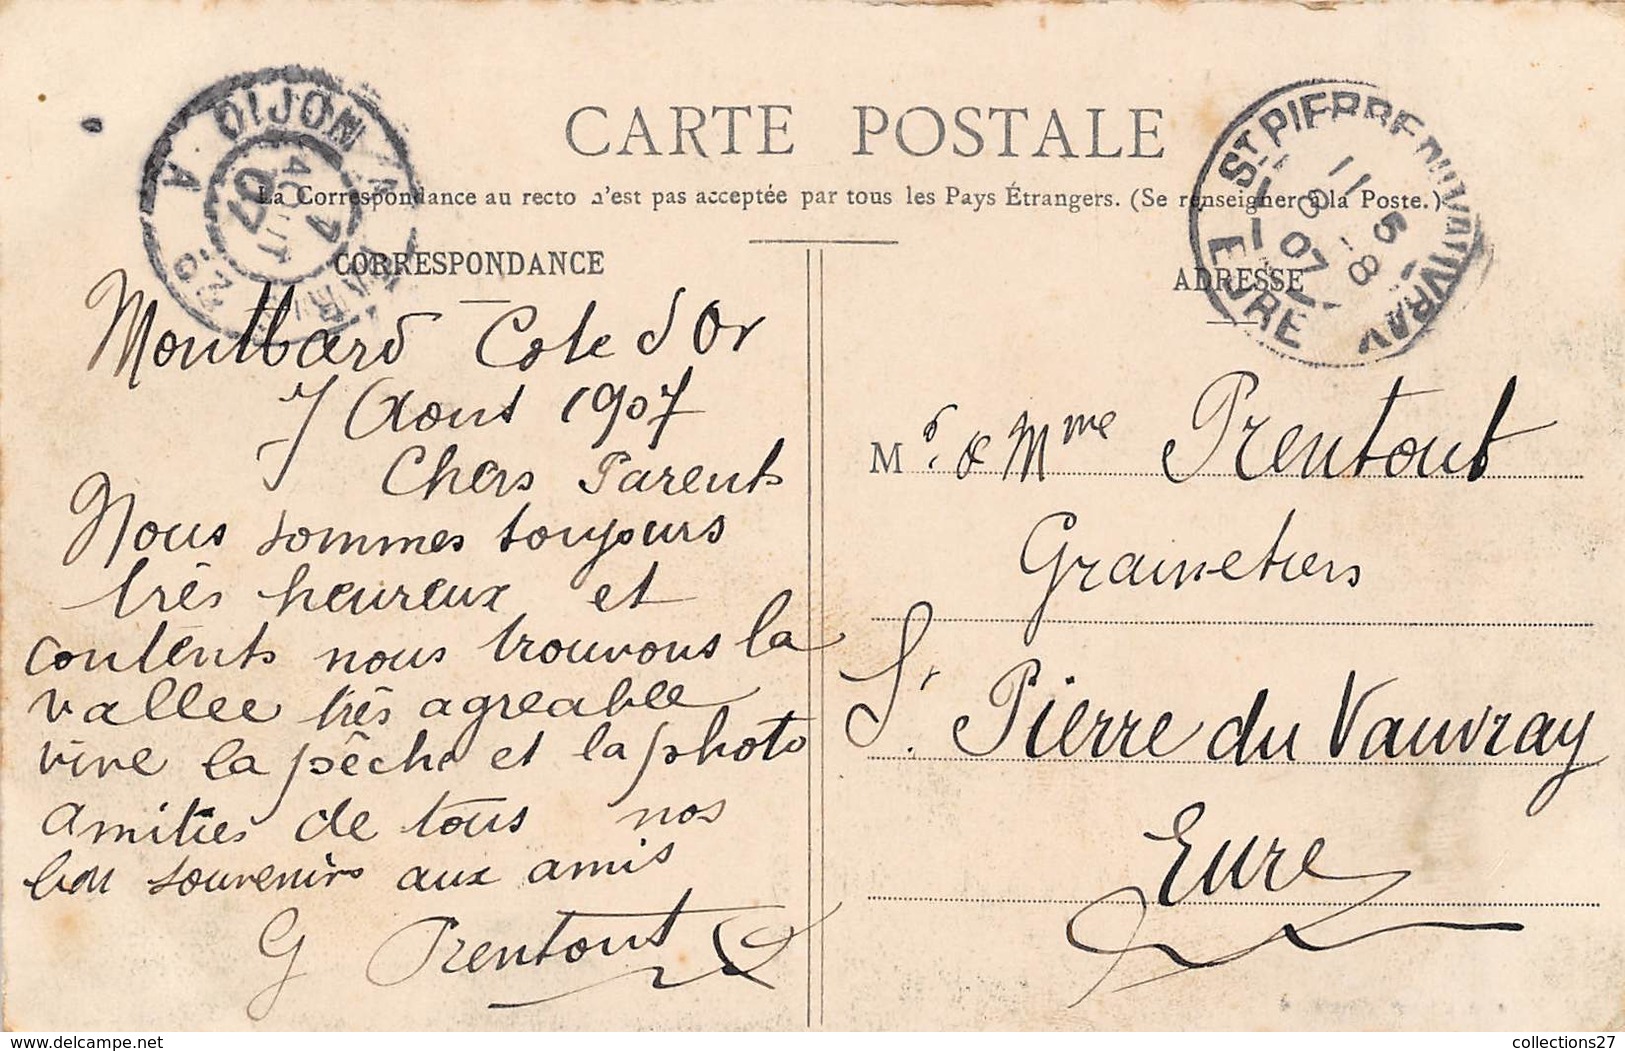 CARTE POSTALE
La Correspondance au recto n'est pas acceptée par tous les Pays Étrangers. (Se renseigner à la Poste.)
CORRESPONDANCE
Montbard Cote d'Or
7 Aout 1907
Chers Parents
Nous sommes toujours
très heureux et
contents nous trouvons la
vallee très agreable
vive la pêche et la photo
amitiés de tous nos
bon souvenirs aux amis
G Prentout
ADRESSE
Mr. & Mme Prentout
Grainetiers
St. Pierre du Vauvray
Eure
DIJON A PARIS
7
AOUT
07
ST PIERRE DU VAUVRAY
EURE
11 5
8 -8
07
delcampe.net
collections27